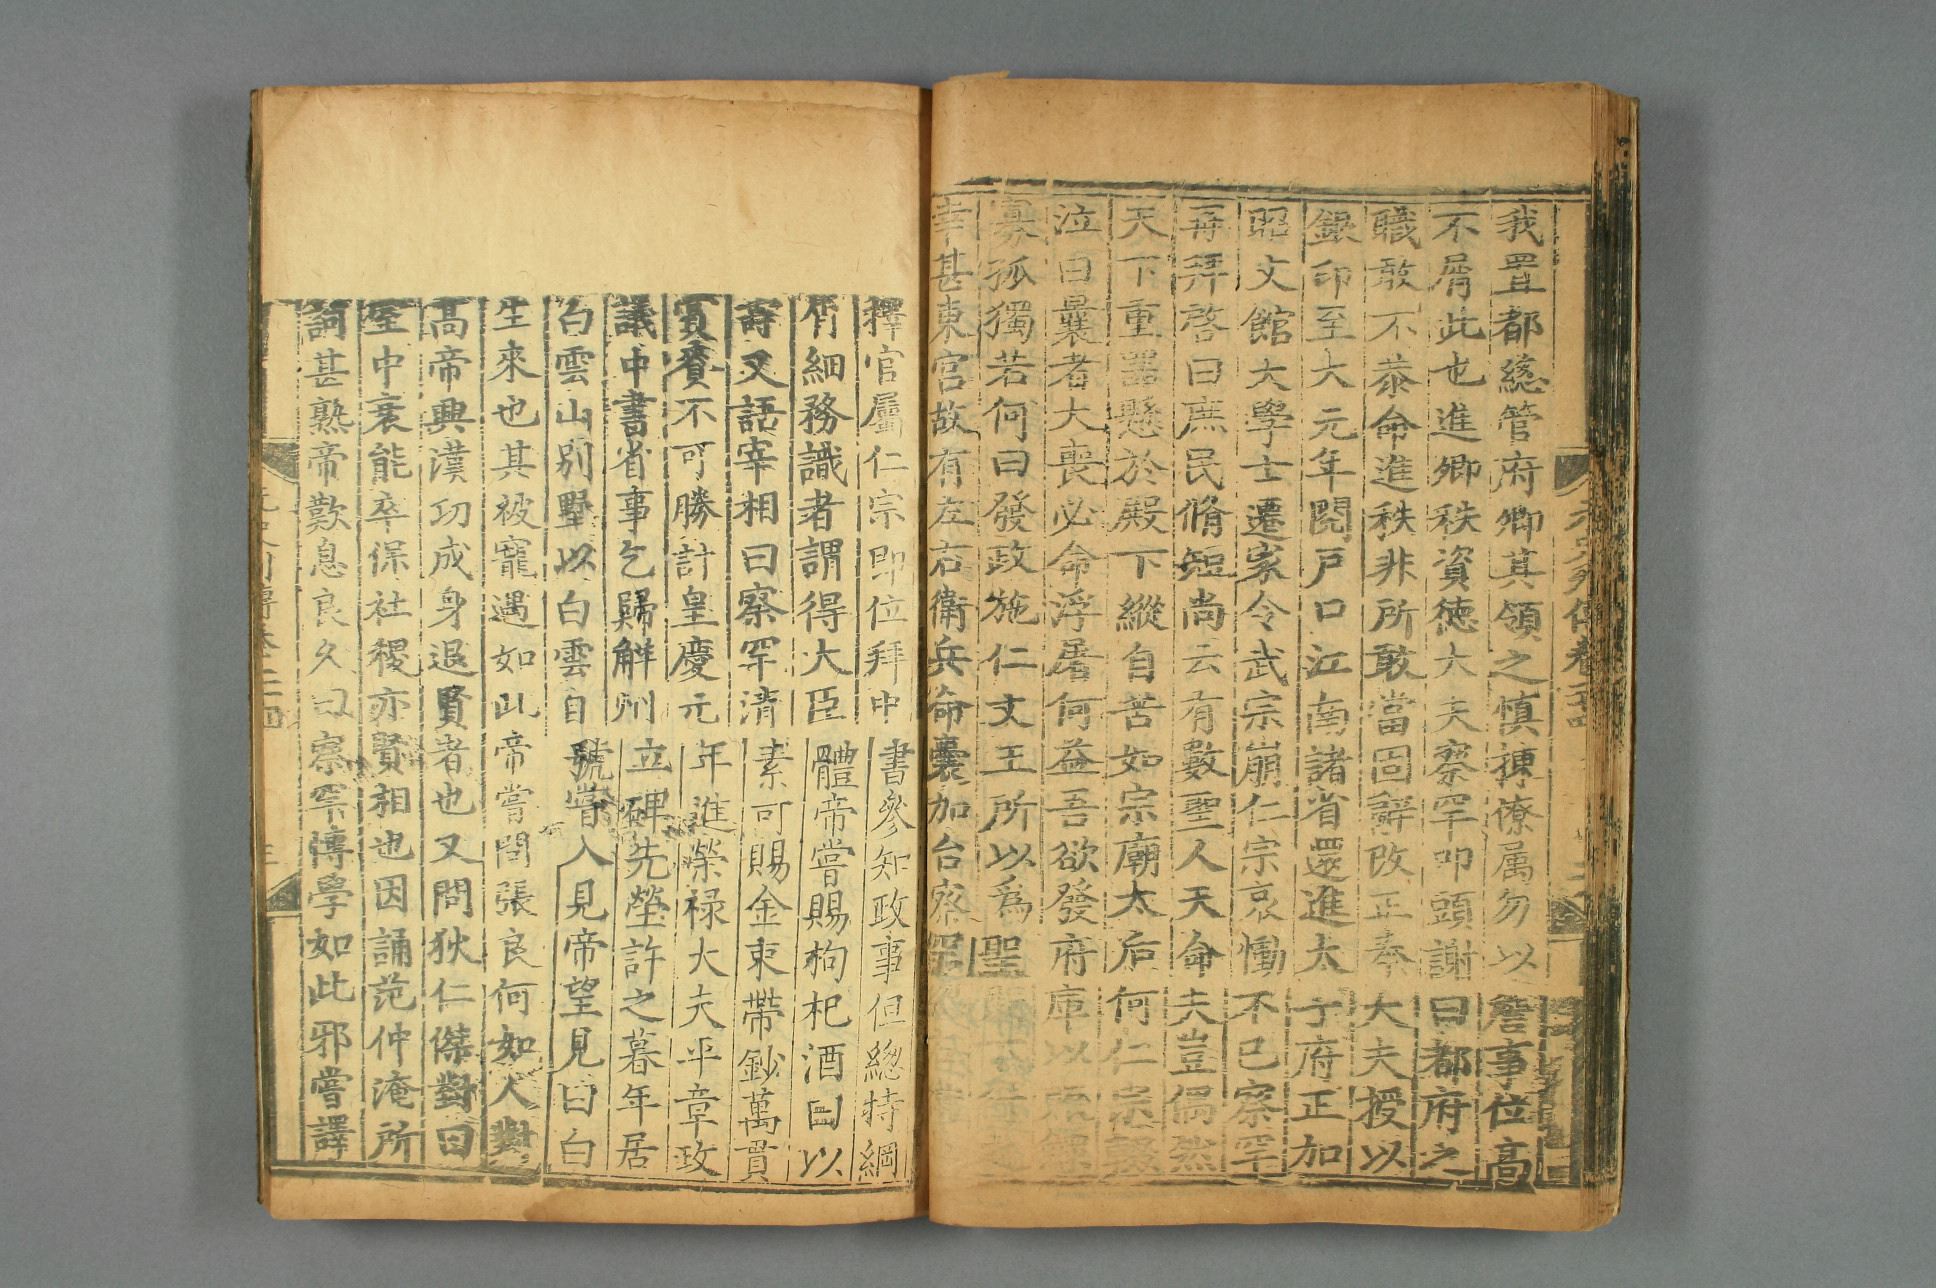 元史列傳卷二十四
我置都總管府卿其領之慎揀僚属勿以詹事位高
不屑此也進卿秩資德大夫察罕叩頭謝曰都府之
職敢不恭命進秩非所敢當固辭改正奉大夫授以
銀印至大元年閱戸口江南諸省還進太子府正加
昭文館大學士遷家令武宗崩仁宗哀慟不已察罕
再拜啓曰庶民脩短尚云有數聖人天命夫豈偶然
天下重器懸於殿下縱自苦如宗廟太后何仁宗輟
泣曰曩者大喪必命浮屠何益吾欲發府庫以賑鰥
寡孤獨若何曰發政施仁文王所以爲聖
幸甚東宮故有左右衛兵命囊加台察罕
擇官屬仁宗即位拜中書參知政事但總持綱
屑細務識者謂得大臣體帝嘗賜枸杞酒曰以
壽又語宰相曰察罕清素可賜金束帶鈔萬貫
賞賚不可勝計皇慶元年進榮禄大夫平章政
議中書省事乞歸解州立碑先塋許之暮年居
白雲山別墅以白雲自號嘗入見帝望見曰白
生來也其被寵遇如此帝嘗問張良何如人對
高帝興漢功成身退賢者也又問狄仁傑對曰
室中衰能卒保社稷亦賢相也因誦范仲淹所
詞甚熟帝歎息良久曰察罕博學如此邪嘗譯
元史列傳卷二十四 三